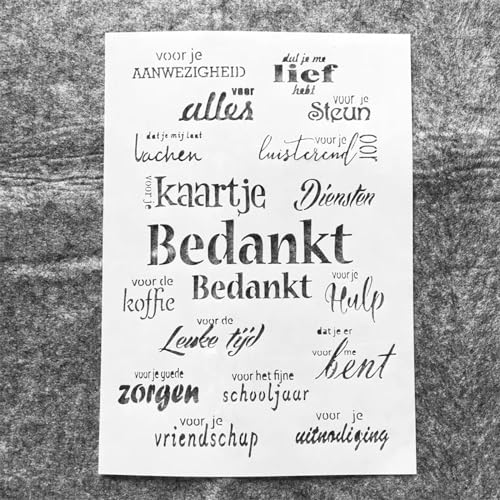 voor je
AANWEZIGHEID
dat je me
lief
hebt
voor
alles
voor je
Steun
dat je mij laat
Lachen
voor je
luisterend
oor
voor je
kaartje
Diensten
Bedankt
Bedankt
voor de
koffie
voor je
Hulp
voor de
Leuke tijd
dat je er
voor me
bent
voor je goede
zorgen
voor het fijne
schooljaar
voor je
vriendschap
voor je
uitnodiging